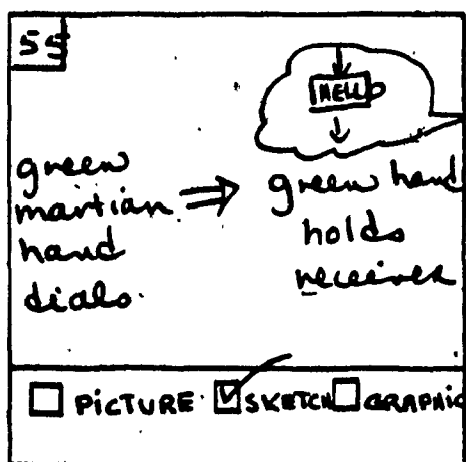 55
HELLO
green
martian
hand
dials.
⇒
green hand
holds
receiver
☐ PICTURE ☑ SKETCH ☐ GRAPHIC